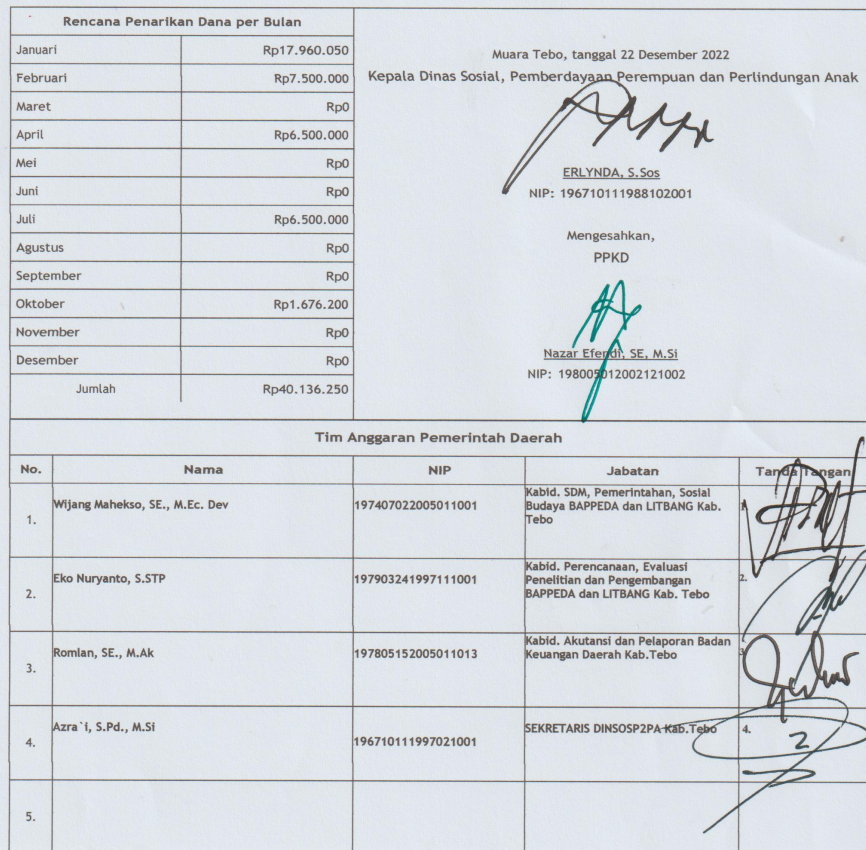 Rencana Penarikan Dana per Bulan
Januari Rp17.960.050
Februari Rp7.500.000
Maret Rp0
April Rp6.500.000
Mei Rp0
Juni Rp0
Juli Rp6.500.000
Agustus Rp0
September Rp0
Oktober Rp1.676.200
November Rp0
Desember Rp0
Jumlah Rp40.136.250
Muara Tebo, tanggal 22 Desember 2022
Kepala Dinas Sosial, Pemberdayaan Perempuan dan Perlindungan Anak
ERLYNDA, S.Sos
NIP: 196710111988102001
Mengesahkan,
PPKD
Nazar Efendi, SE, M.Si
NIP: 198005012002121002
Tim Anggaran Pemerintah Daerah
No. Nama NIP Jabatan Tanda Tangan
1. Wijang Mahekso, SE., M.Ec. Dev 197407022005011001 Kabid. SDM, Pemerintahan, Sosial
Budaya BAPPEDA dan LITBANG Kab.
Tebo
1.
2. Eko Nuryanto, S.STP 197903241997111001 Kabid. Perencanaan, Evaluasi
Penelitian dan Pengembangan
BAPPEDA dan LITBANG Kab. Tebo
2.
3. Romlan, SE., M.Ak 197805152005011013 Kabid. Akutansi dan Pelaporan Badan
Keuangan Daerah Kab.Tebo
3.
4. Azra`i, S.Pd., M.Si 196710111997021001 SEKRETARIS DINSOSP2PA Kab.Tebo
4.
5.